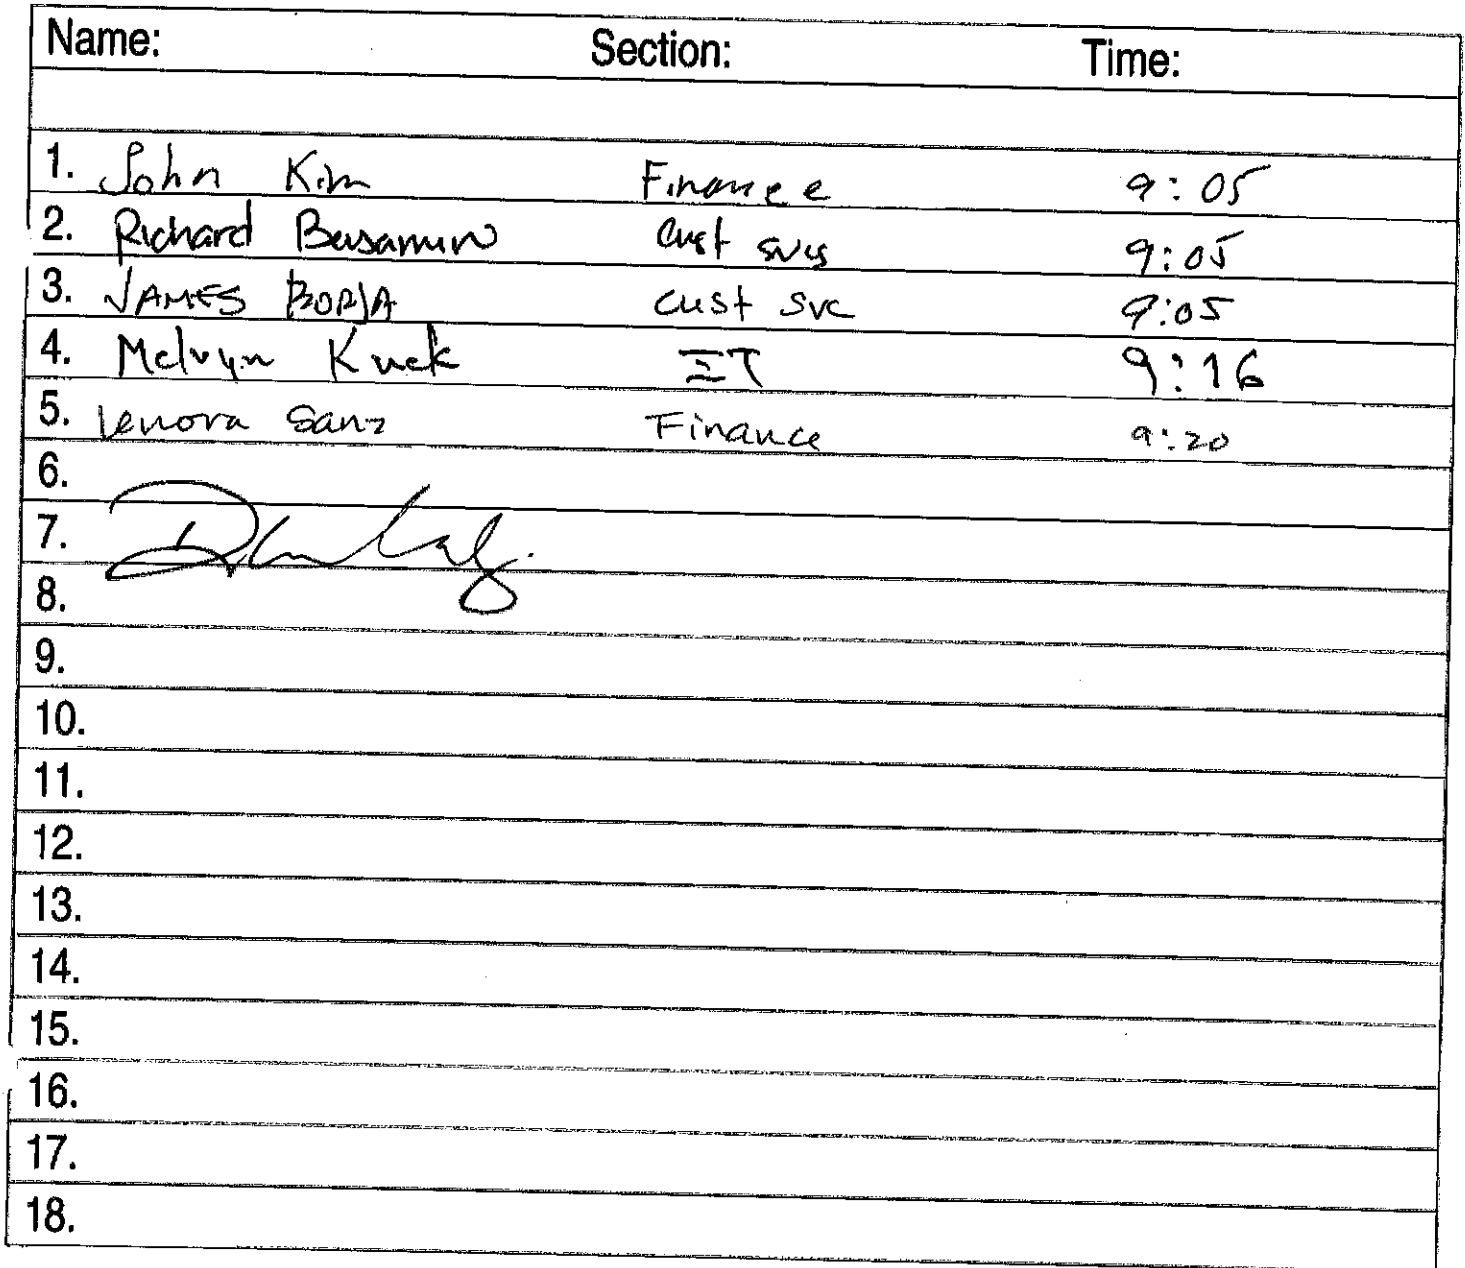 Name: Section: Time:
1. John Kim Finance 9:05
2. Richard Basamin Cust svcs 9:05
3. JAMES BORJA Cust Svc 9:05
4. Melvyn Kuek IT 9:16
5. Lenora Sanz Finance 9:20
6.
7.
8.
9.
10.
11.
12.
13.
14.
15.
16.
17.
18.